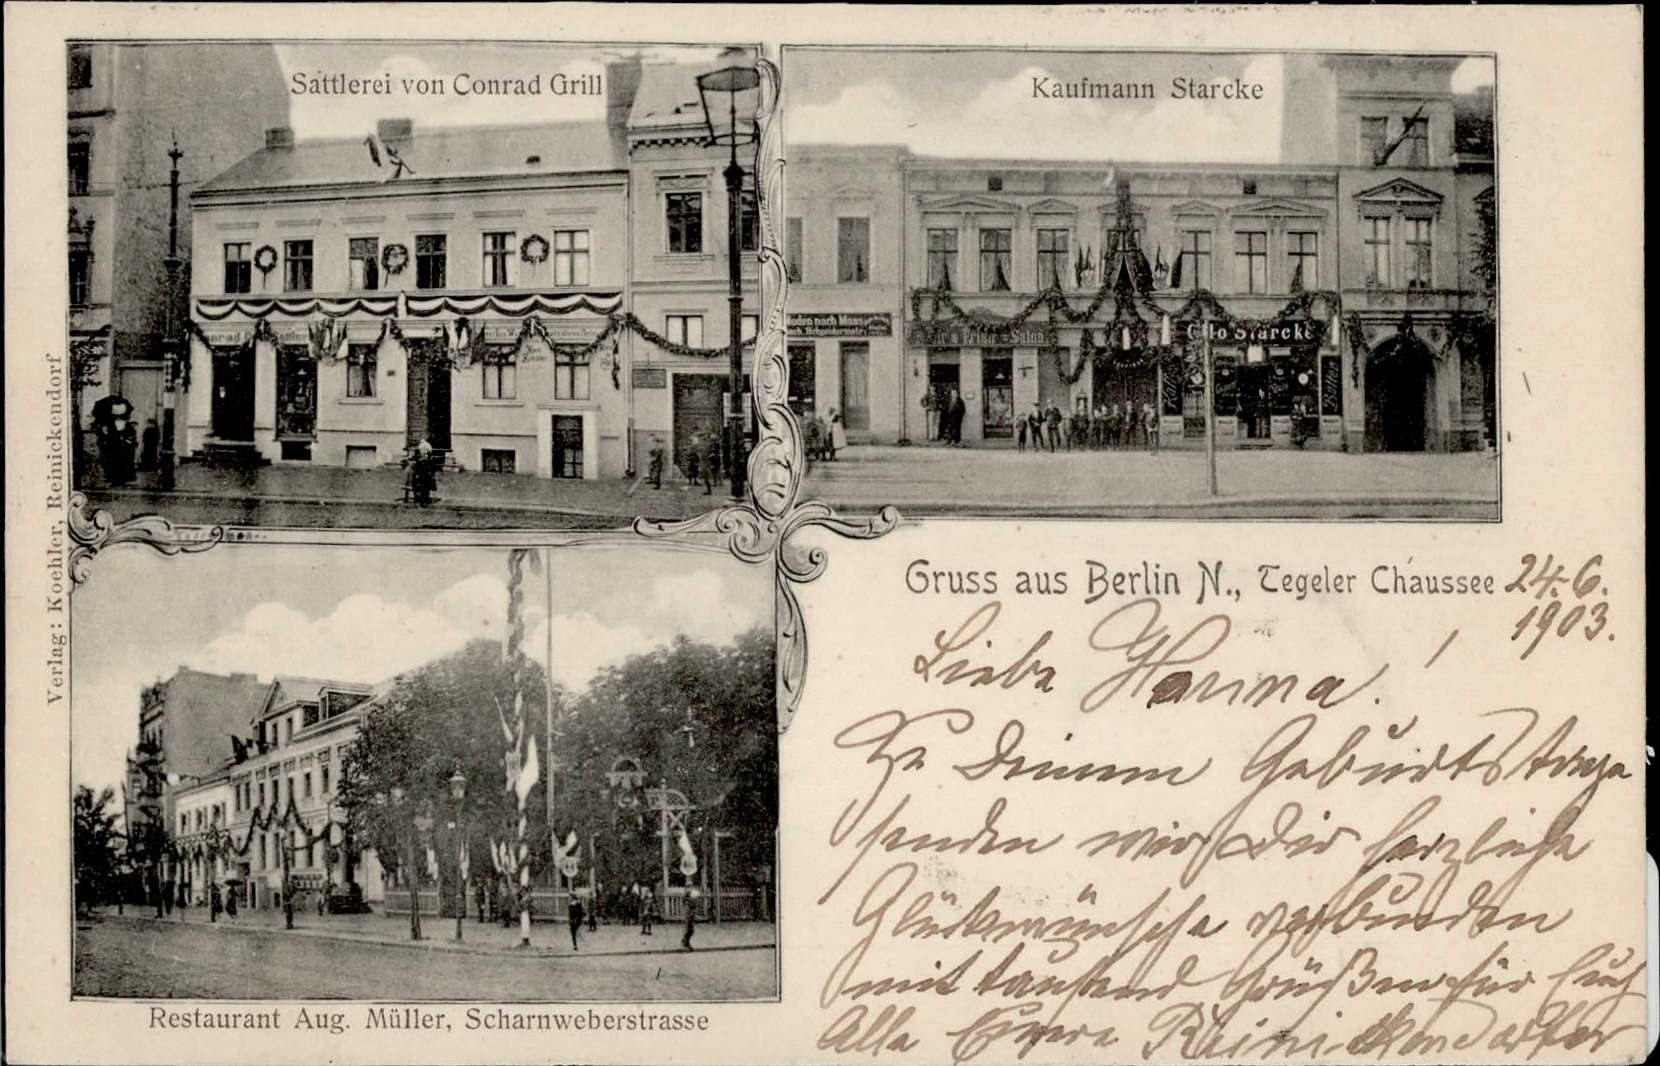 Sattlerei von Conrad Grill
Kaufmann Starcke
Moden nach Maas
Frisir-Salon
Otto Starcke
Verlag: Koehler, Reinickendorf
Gruss aus Berlin N., Tegeler Chaussee
24.6.
1903.
Liebe Hanna!
Zu Deinem Geburtstage
senden wir Dir herzliche
Glückwünsche verbunden
mit tausend Grüßen für Euch
Alle Eure Reinickendorfer
Restaurant Aug. Müller, Scharnweberstrasse